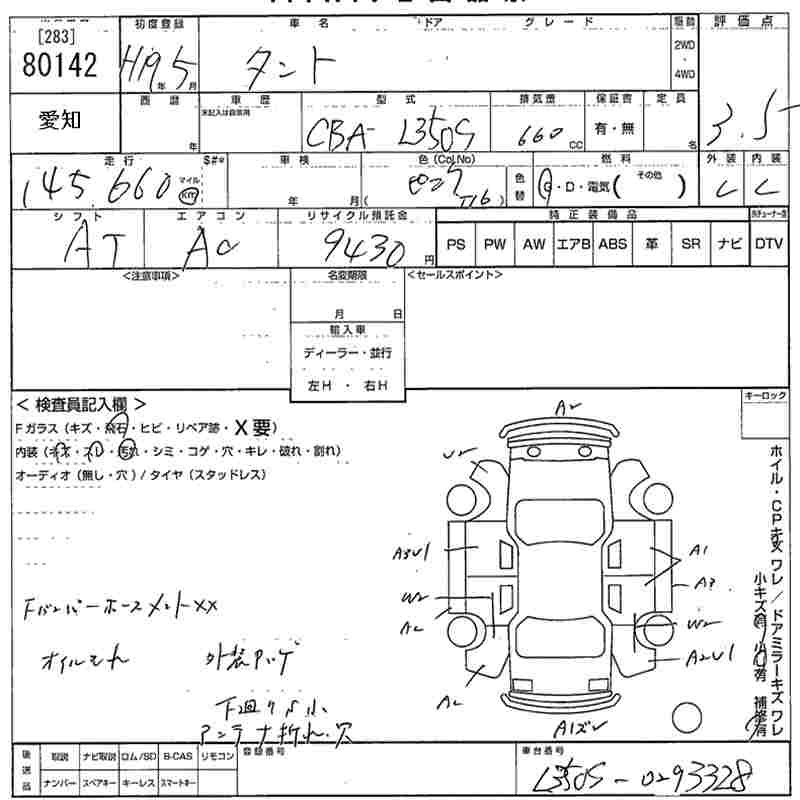 [283]
80142
初度登録
H19年5月
車名
タント
ドア
グレード
駆動
2WD
・
4WD
評価点
3.5
愛知
西暦
年
車歴
未記入は自家用
型式
CBA- L350S
排気量
660 cc
保証書
有・無
定員
名
走行
145,660
マイル
km
S#*
車検
年 月
色(Col.No)
ピンク
( T16 )
色替
燃料
G・D・電気( その他 )
外装
C
内装
C
シフト
AT
エアコン
AC
リサイクル預託金
9430円
純正装備品
PS PW AW エアB ABS 革 SR ナビ
DTV
<注意事項>
名変期限
月 日
輸入車
ディーラー・並行
左H ・ 右H
<セールスポイント>
< 検査員記入欄 >
Fガラス(キズ・飛石・ヒビ・リペア跡・X要)
内装(キズ・スレ・汚れ・シミ・コゲ・穴・キレ・破れ・割れ)
オーディオ(無し・穴)/タイヤ(スタッドレス)
Fバンパーホースメント××
オイルもれ
外装アハゲ
下廻りサ小
アンテナ折れ・穴
キーロック
A2
U2
A3U1
A1
W2
A3
A2
W2
A2U1
A2
A1ズレ
ホイル・CPキズ ワレ/ドアミラーキズ ワレ
小キズ有 小凹有 補修有
後送品
取説 ナビ取説 ロム/SD B-CAS リモコン
ナンバー スペアキー キーレス スマートキー
登録番号
車台番号
L350S-0293328